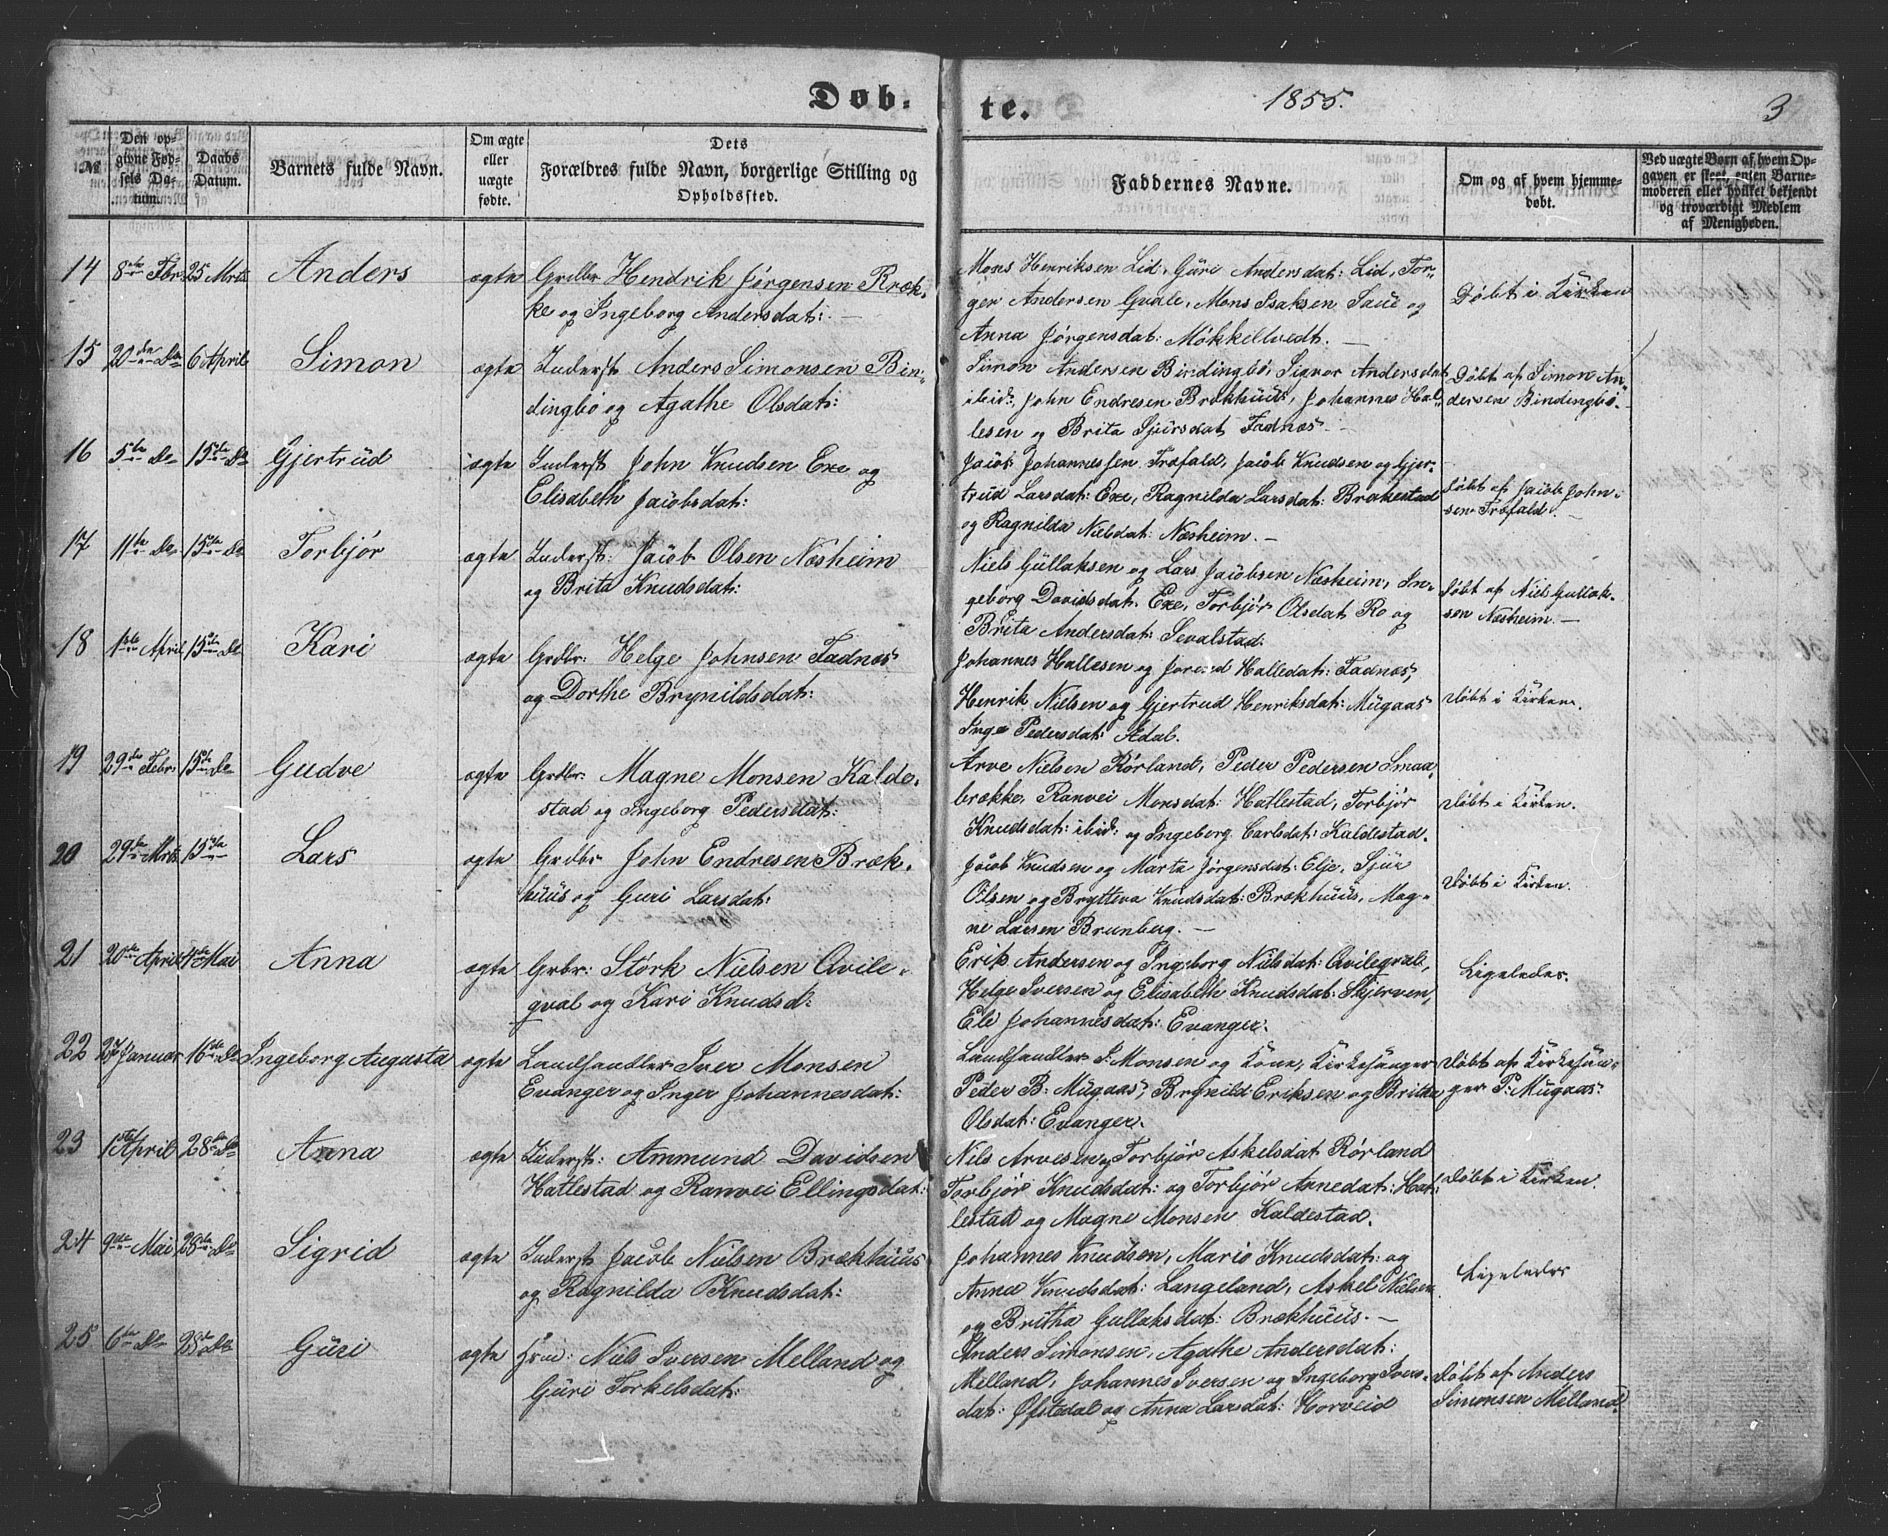 Døb-te. 1855. 3
№ Den opgivne Fødsels Datum. Daabs Datum. Barnets fulde Navn. Om ægte eller uægte fødte. Dets Forældres fulde Navn, borgerlige Stilling og Opholdssted. Faddernes Navne. Om og af hvem hjemmedøbt. Ved uægte Børn af hvem Opgaven er skeet, enten Barnemoderen eller hvilket bekjendt og troværdigt Medlem af Menigheden.
14 8de Fbr 25 Mrts Anders ægte Grdbr Hendrik Jørgensen Kræk-
ke og Ingeborg Andersdat: —
Mons Henriksen Lid, Guri Andersdat: Lid, Tor-
ger Andersen Gvale, Mons Isaksen Saue og
Anna Jørgensdat: Møkkeltvedt. —
Døbt i Kirken
15 20de Do 6 April Simon ægte Inderst Anders Simonsen Bin-
dingbø og Agathe Olsdat:
Simon Andersen Bindingbø, Signor Andersdat
ibid:, John Endresen Brækhuus, Johannes Hal-
lesen og Brita Sjursdat Fadnæs —
Døbt af Simon An-
dersen Bindingbø. —
16 5te Do 15de Do Gjertrud ægte Inderst John Knudsen Exe og
Elisabeth Jacobsdat:
Jacob Johannessen Træfald, Jacob Knudsen og Gjer-
trud Larsdat: Exe, Ragnilda Larsdat: Brakestad
og Ragnilda Nielsdat: Næsheim. —
Døbt af Jacob John-
sen Træfald. —
17 11te Do 15de Do Torbjør ægte Inderst: Jacob Olsen Næsheim
og Brita Knudsdat:
Niels Gullaksen og Lars Jacobsen Næsheim, In-
geborg Davidsdat. Exe, Torbjør Olsdat Ro og
Brita Andersdat: Sevalstad.
Døbt af Niels Gullak-
sen Næsheim. —
18 1ste April 15de Do Kari ægte Grdbr: Helge Johnsen Fadnæs
og Dorthe Brynildsdat:
Johannes Hallesen og Halledat: Fadnæs,
Henrik Nielsen og Gjertrud Henriksdat: Mugaas
Inga Pedersdat: Ædal.
Døbt i Kirken.
19 29de Febr: 15de Do Gudve ægte Grdbr: Magne Monsen Kalde-
stad og Ingeborg Pedersdat:
Arve Nielsen Rørland, Peder Pedersen Smaa-
brække, Ranvei Monsdat: Hatlestad, Torbjør
Knudsdat: ibid: og Ingeborg Carlsdat: Kaldestad.
Døbt i Kirken.
20 29de Mrts 15de Lars ægte Grdbr John Endresen Bræk-
huus og Guri Larsdat:
Jacob Knudsen og Marta Jørgensdat: Elje, Sjur
Olsen og Brytteva Knudsdat: Brækhuus, Mag-
ne Larsen Brunberg. —
Døbt i Kirken.
21 20de April 4de Mai Anna ægte Grbr: Størk Nielsen Qvile-
qval og Kari Knudsd:
Erik Andersen og Ingeborg Nielsdat: Qvileqvale,
Helge Iversen og Elisabeth Knudsdat: Skjerven,
Eli Johannesdat: Evanger.
Ligeledes.
22 27 Januar 16de Do Ingeborg Augusta ægte Landhandler Iver Monsen
Evanger og Inger Johannesdat:
Landhandler I: Monsen og Kone, Kirkesanger
Peder B: Mugaas, Brynild Eriksen og Britha
Olsdat: Evanger.
Døbt af Kirkesan-
ger P: Mugaas.
23 1ste April 28de Do Anna ægte Inderst: Ammund Davidsen
Hatlestad og Ranvei Ellingsdat:
Nils Arvesen og Torbjør Askelsdat Rørland
Torbjør Knudsdat: og Torbjør Annedat: Hat-
lestad og Magne Monsen Kaldestad.
Døbt i Kirken.
24 9de Mai 28de Do Sigrid ægte Inderst Jacob Nielsen Brækhuus
og Ragnilda Knudsdat:
Johannes Knudsen, Mario Knudsdat: og
Anna Knudsdat: Langeland, Askel Nielsen
og Britha Gullaksdat: Brækhuus. —
Ligeledes
25 6te Do 28de Do Guri ægte Niels Iversen Melland og
Guri Torkelsdat:
Anders Simonsen, Agathe Andersdat:
Melland, Johannes Iversen og Ingeborg Ivers-
dat: Øfstedal og Anna Larsdat: Horveid
Døbt af Anders
Simonsen Melland.